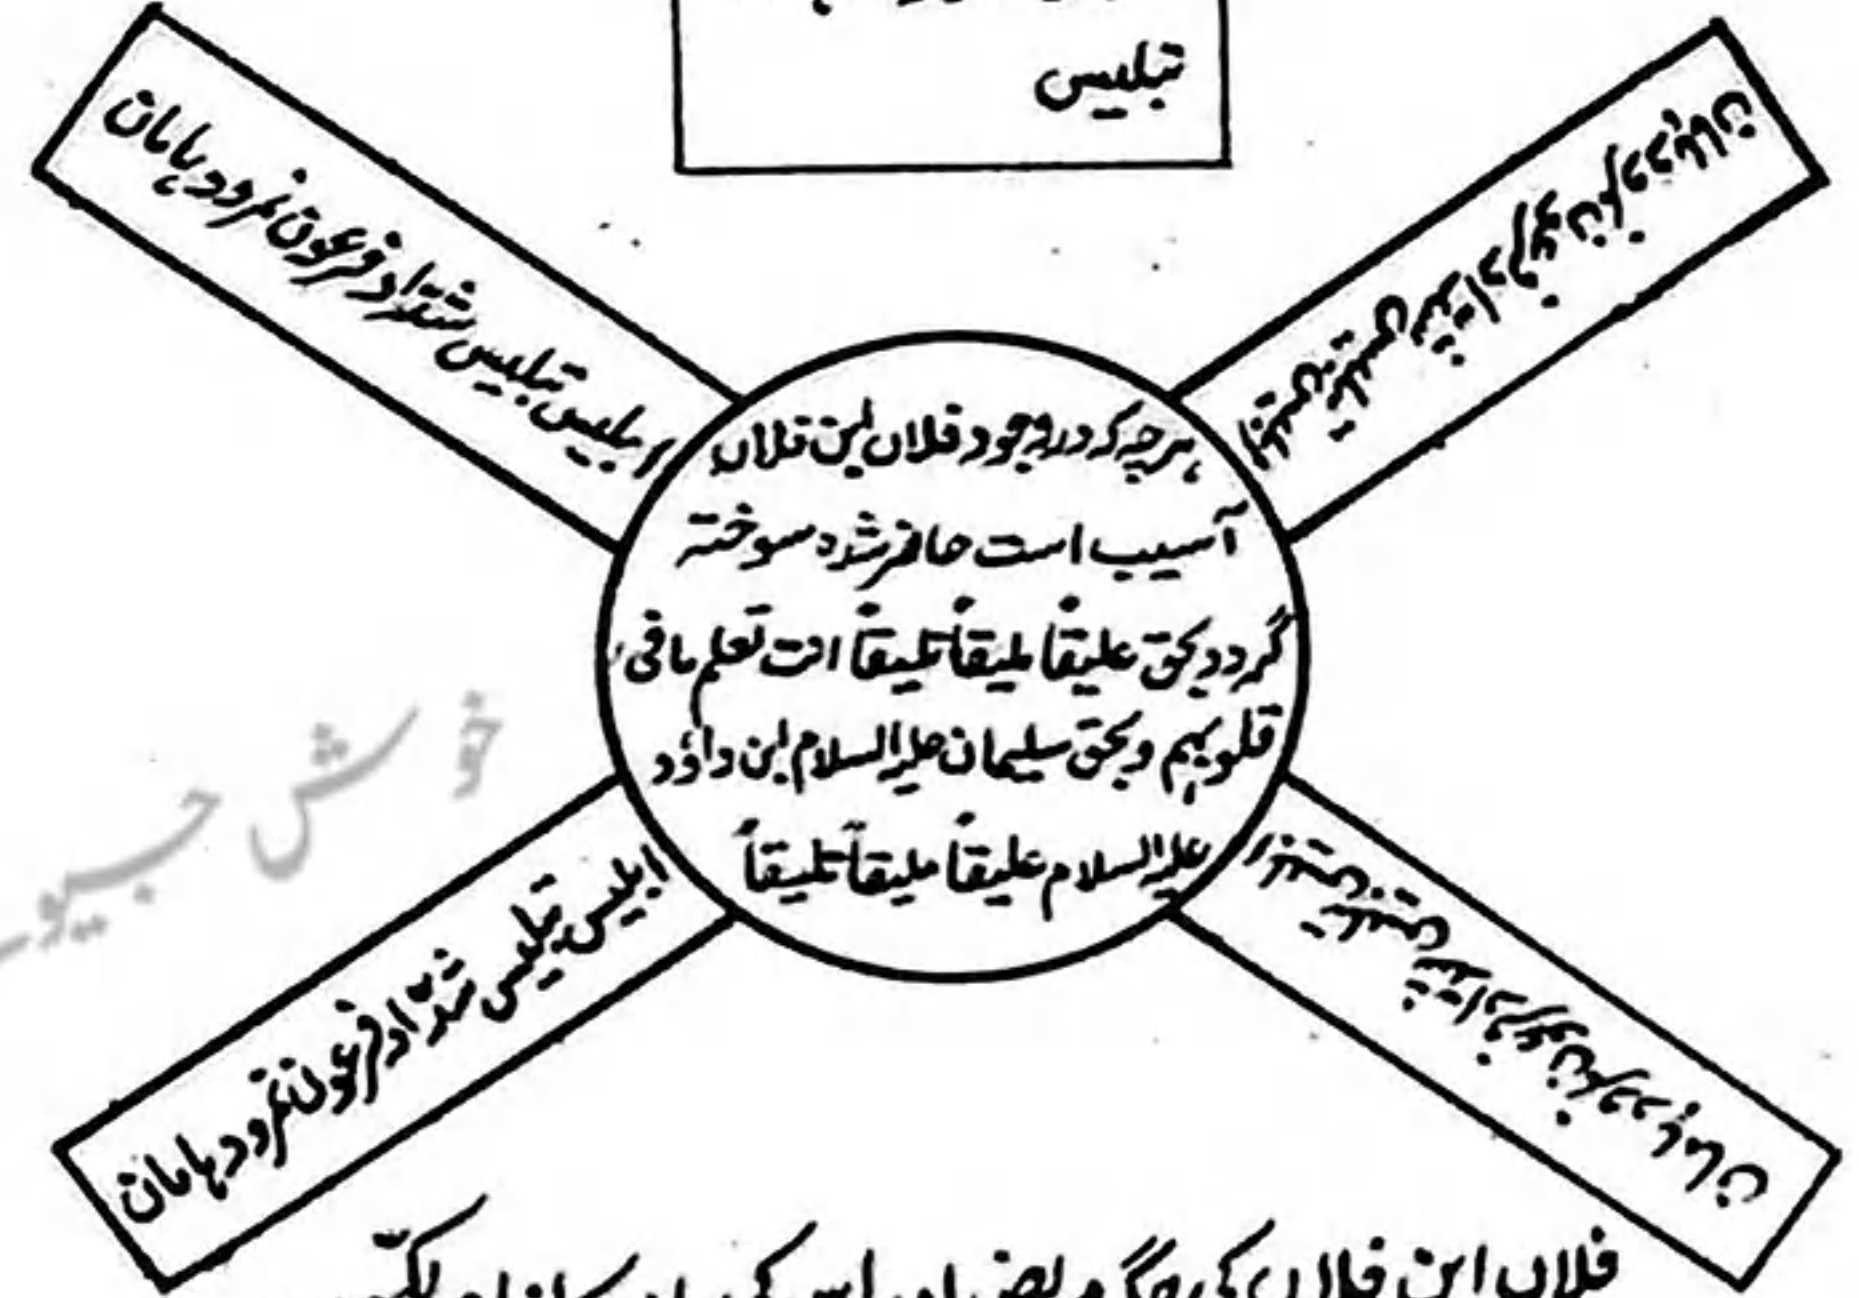 تبلیس
ابلیس تبلیس شدّاد فرعون نمرود ہامان
ابلیس تبلیس شدّاد فرعون نمرود ہامان
ہرچہ کہ در وجود فلاں ابن فلاں
آسیب است حاضر شدہ سوختہ
گردد بحق علیقاً ملیقاً تلیقاً انت تعلم مافی
قلوبہم و بحق سلیمان علیہ السلام ابن داؤد
علیہ السلام علیقاً ملیقاً تلیقاً
ابلیس تبلیس شدّاد فرعون نمرود ہامان
ابلیس تبلیس شدّاد فرعون نمرود ہامان
خوش جبیو
فلاں ابن فلاں کی جگہ مریض اور اس کی ماں کا نام لکھیں